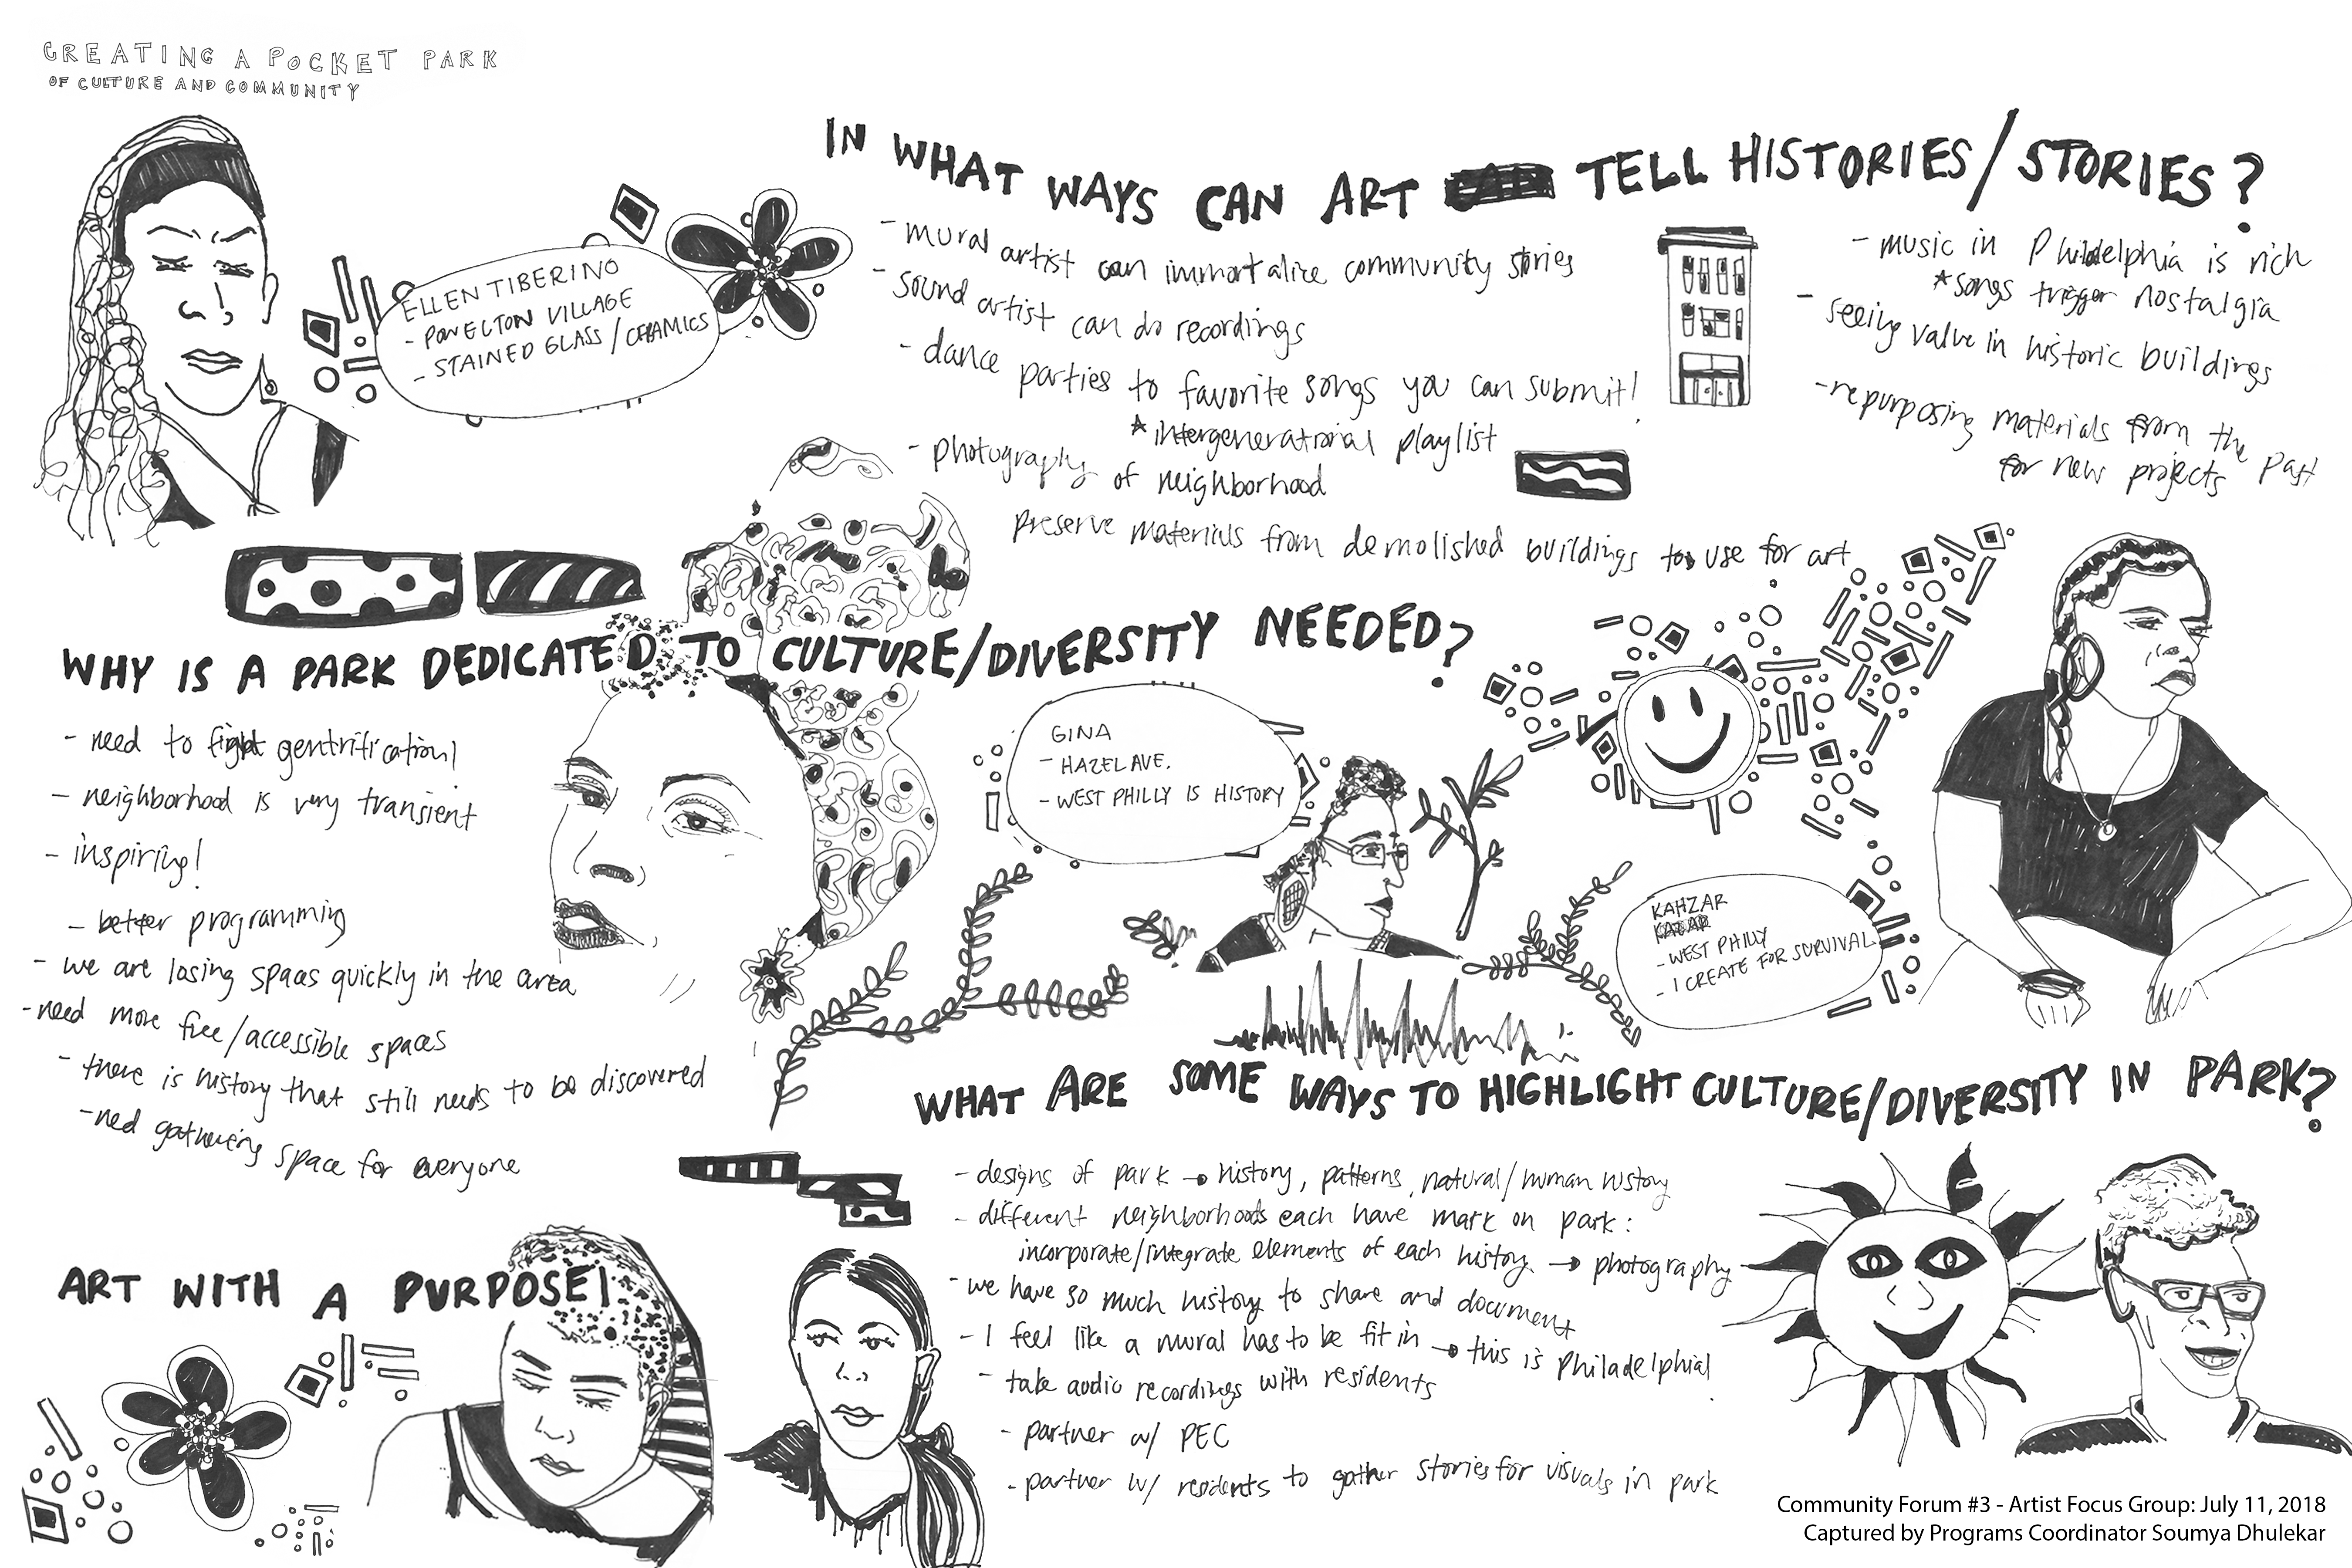 CREATING A POCKET PARK
OF CULTURE AND COMMUNITY
ELLEN TIBERINO
- POWELTON VILLAGE
- STAINED GLASS/CERAMICS
IN WHAT WAYS CAN ART TELL HISTORIES/STORIES?
- mural artist can immortalize community stories
- sound artist can do recordings
- dance parties to favorite songs you can submit!
*intergenerational playlist
- photography of neighborhood
preserve materials from demolished buildings to use for art
- music in Philadelphia is rich
*songs trigger nostalgia
- seeing value in historic buildings
- repurposing materials from the past
for new projects
WHY IS A PARK DEDICATED TO CULTURE/DIVERSITY NEEDED?
- need to fight gentrification!
- neighborhood is very transient
- inspiring!
- better programming
- we are losing spaces quickly in the area
- need more free/accessible spaces
- there is history that still needs to be discovered
- ned gathering space for everyone
GINA
- HAZEL AVE.
- WEST PHILLY IS HISTORY
KAHZAR
- WEST PHILLY
- I CREATE FOR SURVIVAL
WHAT ARE SOME WAYS TO HIGHLIGHT CULTURE/DIVERSITY IN PARK?
- designs of park → history, patterns, natural/human history
- different neighborhoods each have mark on park:
incorporate/integrate elements of each history → photography
- we have so much history to share and document
- I feel like a mural has to be fit in → this is Philadelphia!
- take audio recordings with residents
- partner w/ PEC
- partner w/ residents to gather stories for visuals in park
ART WITH A PURPOSE!
Community Forum #3 - Artist Focus Group: July 11, 2018
Captured by Programs Coordinator Soumya Dhulekar